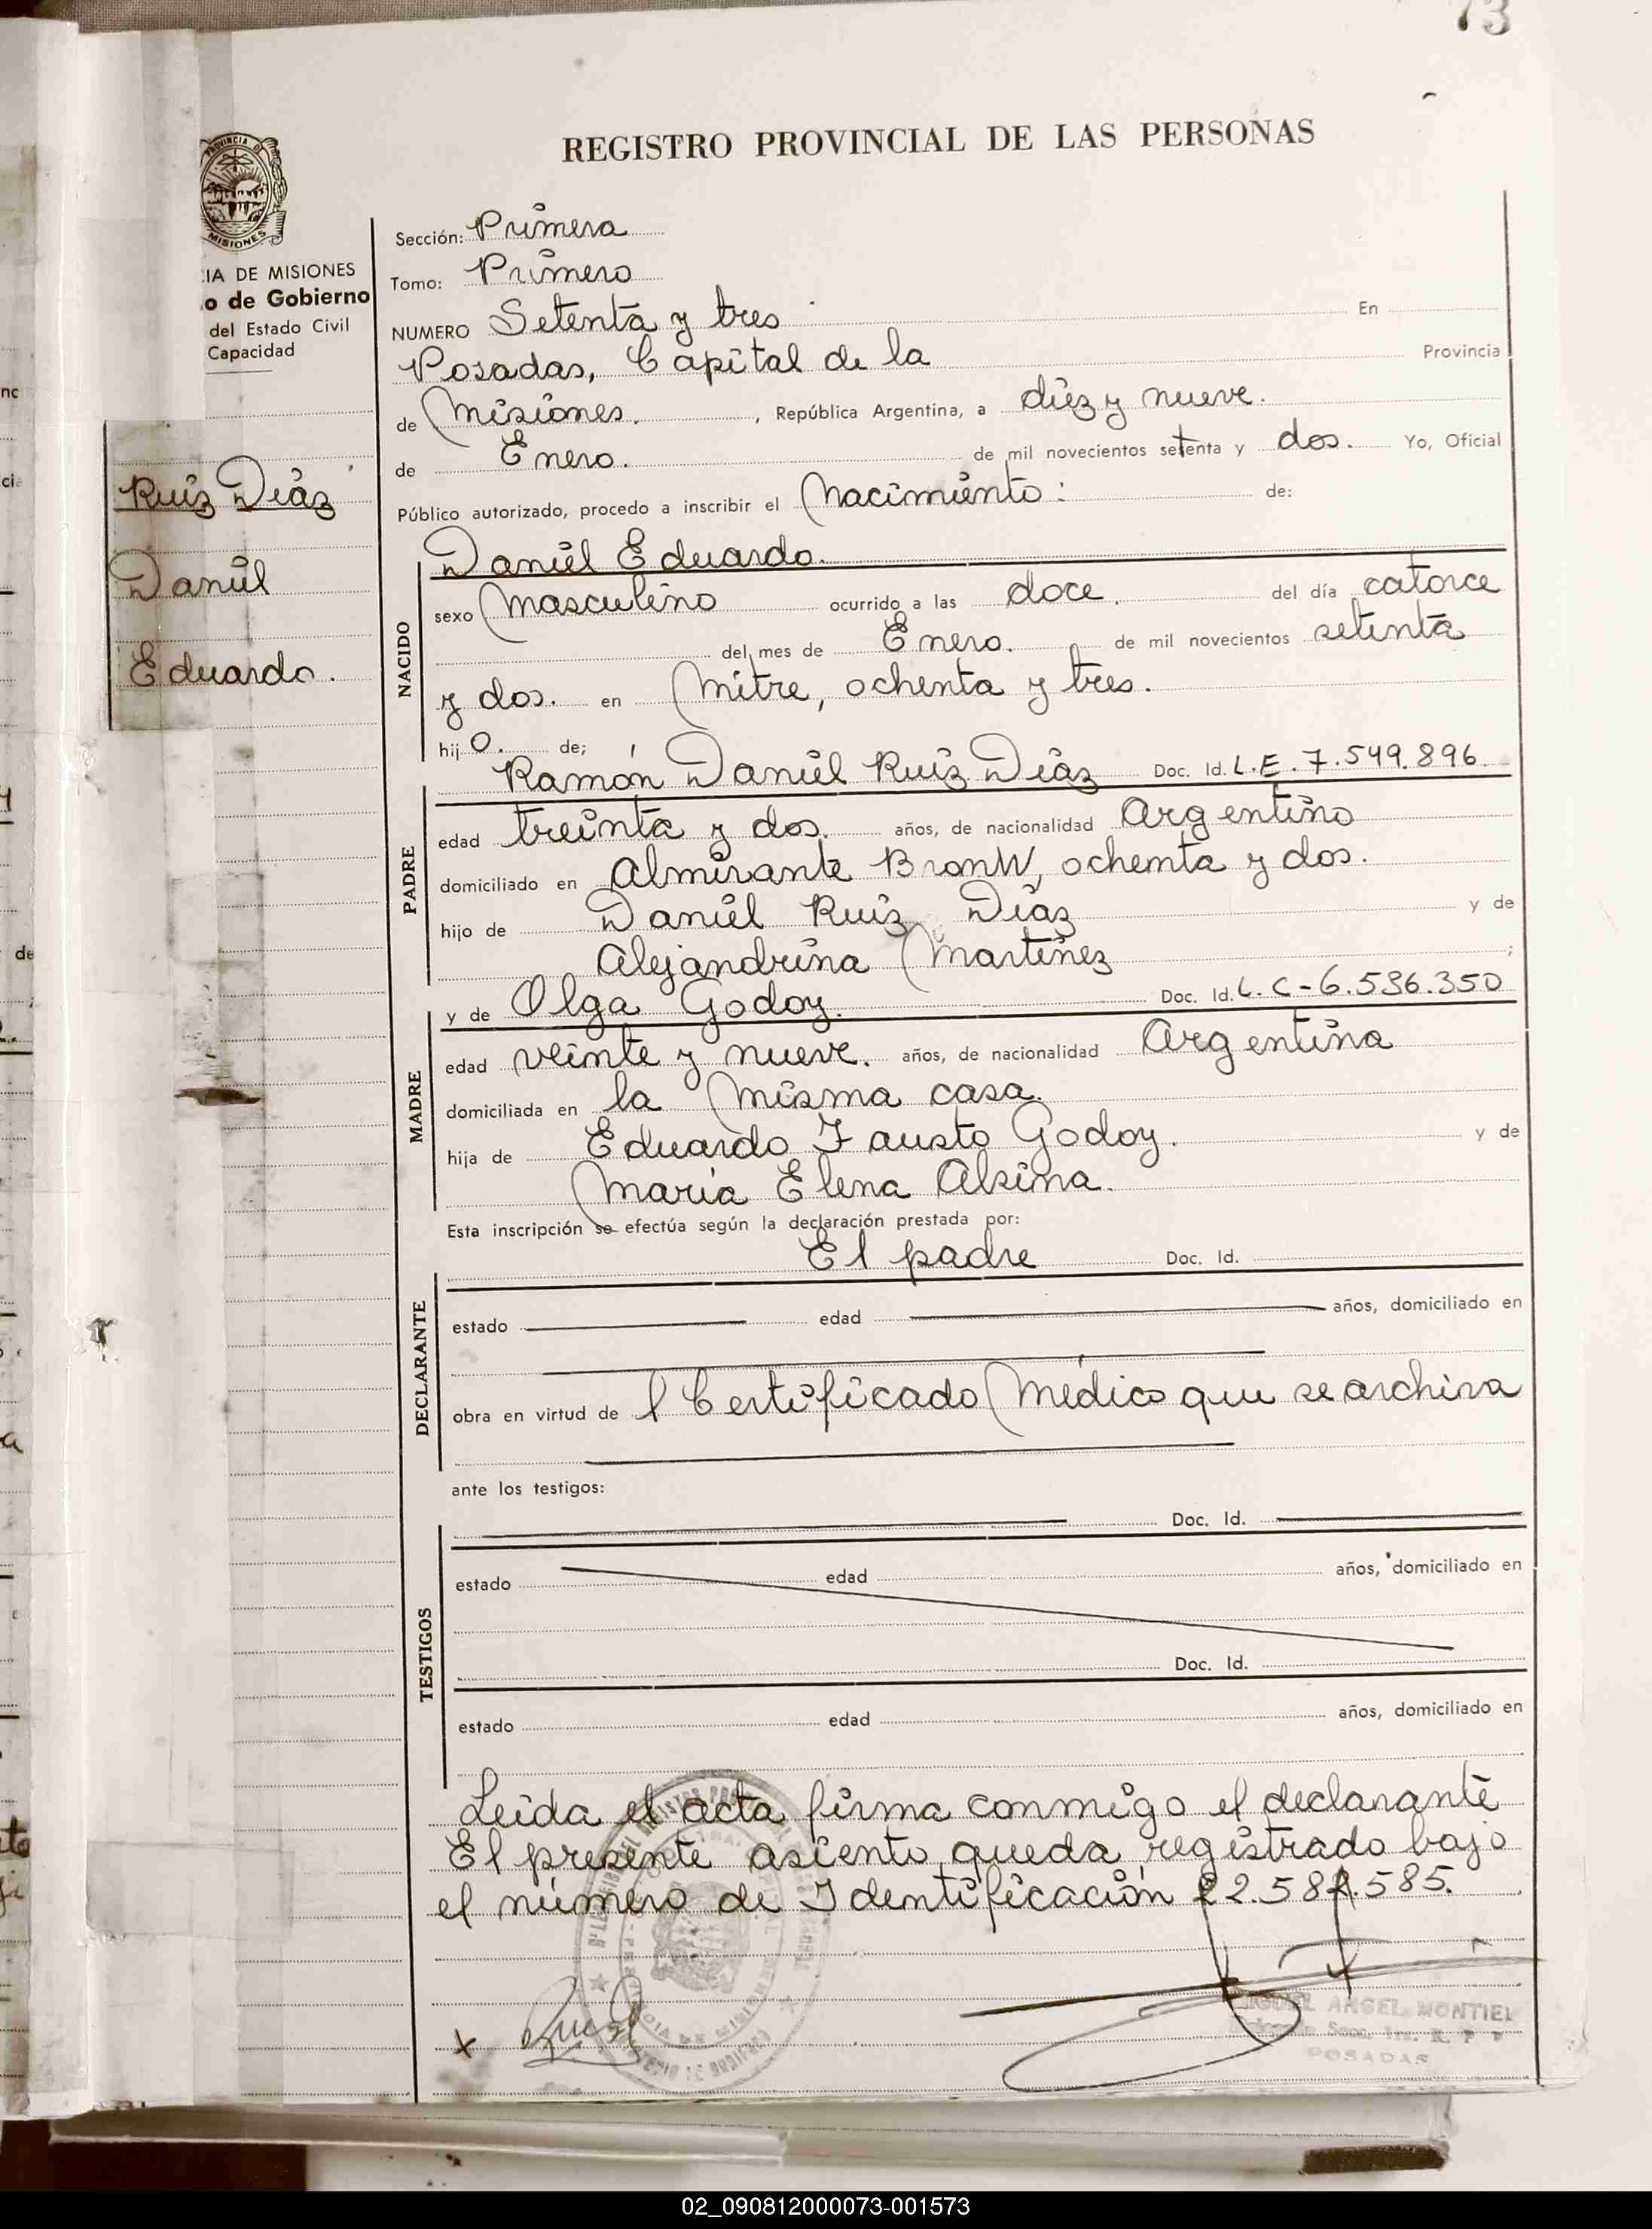 73
REGISTRO PROVINCIAL DE LAS PERSONAS
PROVINCIA DE
MISIONES
IA DE MISIONES
o de Gobierno
del Estado Civil
Capacidad
Ruiz Diaz
Daniel
Eduardo.
Sección: Primera
Tomo: Primero
NUMERO Setenta y tres En
Posadas, Capital de la Provincia
de Misiones. , República Argentina, a diez y nueve.
de Enero. de mil novecientos setenta y dos. Yo, Oficial
Público autorizado, procedo a inscribir el Nacimiento: de:
NACIDO
Daniel Eduardo.
sexo Masculino ocurrido a las doce. del día catorce
del mes de Enero. de mil novecientos setenta
y dos. en Mitre, ochenta y tres.
hij o. de;
PADRE
Ramón Daniel Ruiz Diaz Doc. Id. L.E. 7.549.896
edad treinta y dos. años, de nacionalidad Argentino
domiciliado en Almirante BronW, ochenta y dos.
hijo de Daniel Ruiz Diaz y de
Alejandrina Martinez ;
MADRE
y de Olga Godoy. Doc. Id. L.C-6.536.350
edad veinte y nueve. años, de nacionalidad Argentina
domiciliada en la misma casa.
hija de Eduardo Fausto Godoy. y de
María Elena Alsina.
Esta inscripción se efectúa según la declaración prestada por:
DECLARANTE
El padre Doc. Id.
estado edad años, domiciliado en
obra en virtud de l Certificado Médico que se archiva
ante los testigos:
TESTIGOS
Doc. Id.
estado edad años, domiciliado en
Doc. Id.
estado edad años, domiciliado en
Leida el acta firma conmigo el declarante
El presente asiento queda registrado bajo
el número de Identificación 22.584.585.
MIGUEL ANGEL MONTIEL
POSADAS
02_090812000073-001573